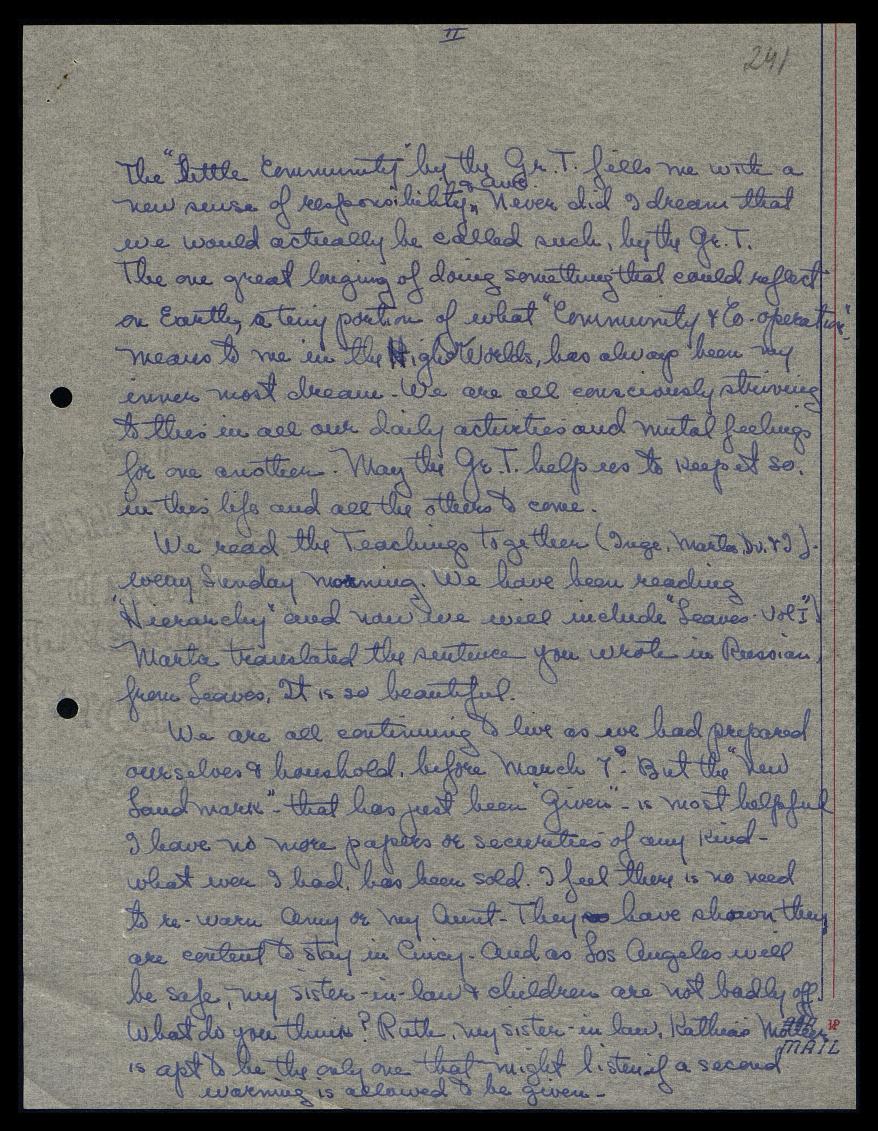 II
241
The "little Community" by the Gr. T. fills me with a
new sense of responsibility, & awe. Never did I dream that
we would actually be called such, by the Gr. T.
The one great longing of doing something that could reflect
on Earth, a tiny portion of what "Community & Co-operation"
means to me in the High Worlds, has always been my
inner most dream. We are all consciously striving
to this in all our daily activities and mutal feelings
for one another. May the Gr. T. help us to keep it so.
in this life and all the others to come.
We read the Teachings together (Inge, Marta, Dv. & I).
every Sunday morning. We have been reading
"Hierarchy" and now we will include "Leaves-Vol I"
Marta translated the sentence you wrote in Russian,
from Leaves, It is so beautiful.
We are all continuing to live as we had prepared
ourselves & houshold, before March 7º. But the "New
Land mark" - that has just been "Given" - is most helpful
I have no more papers or securities of any kind -
what ever I had, has been sold. I feel there is no need
to re-warn Amy or my Aunt - They have shown they
are content to stay in Cincy - And as Los Angeles will
be safe, my sister-in-law & children are not badly off.
What do you think? Ruth, my sister-in law, Kathies Mother
is apt to be the only one that might listen if a second
warning is allowed to be given -
MAIL